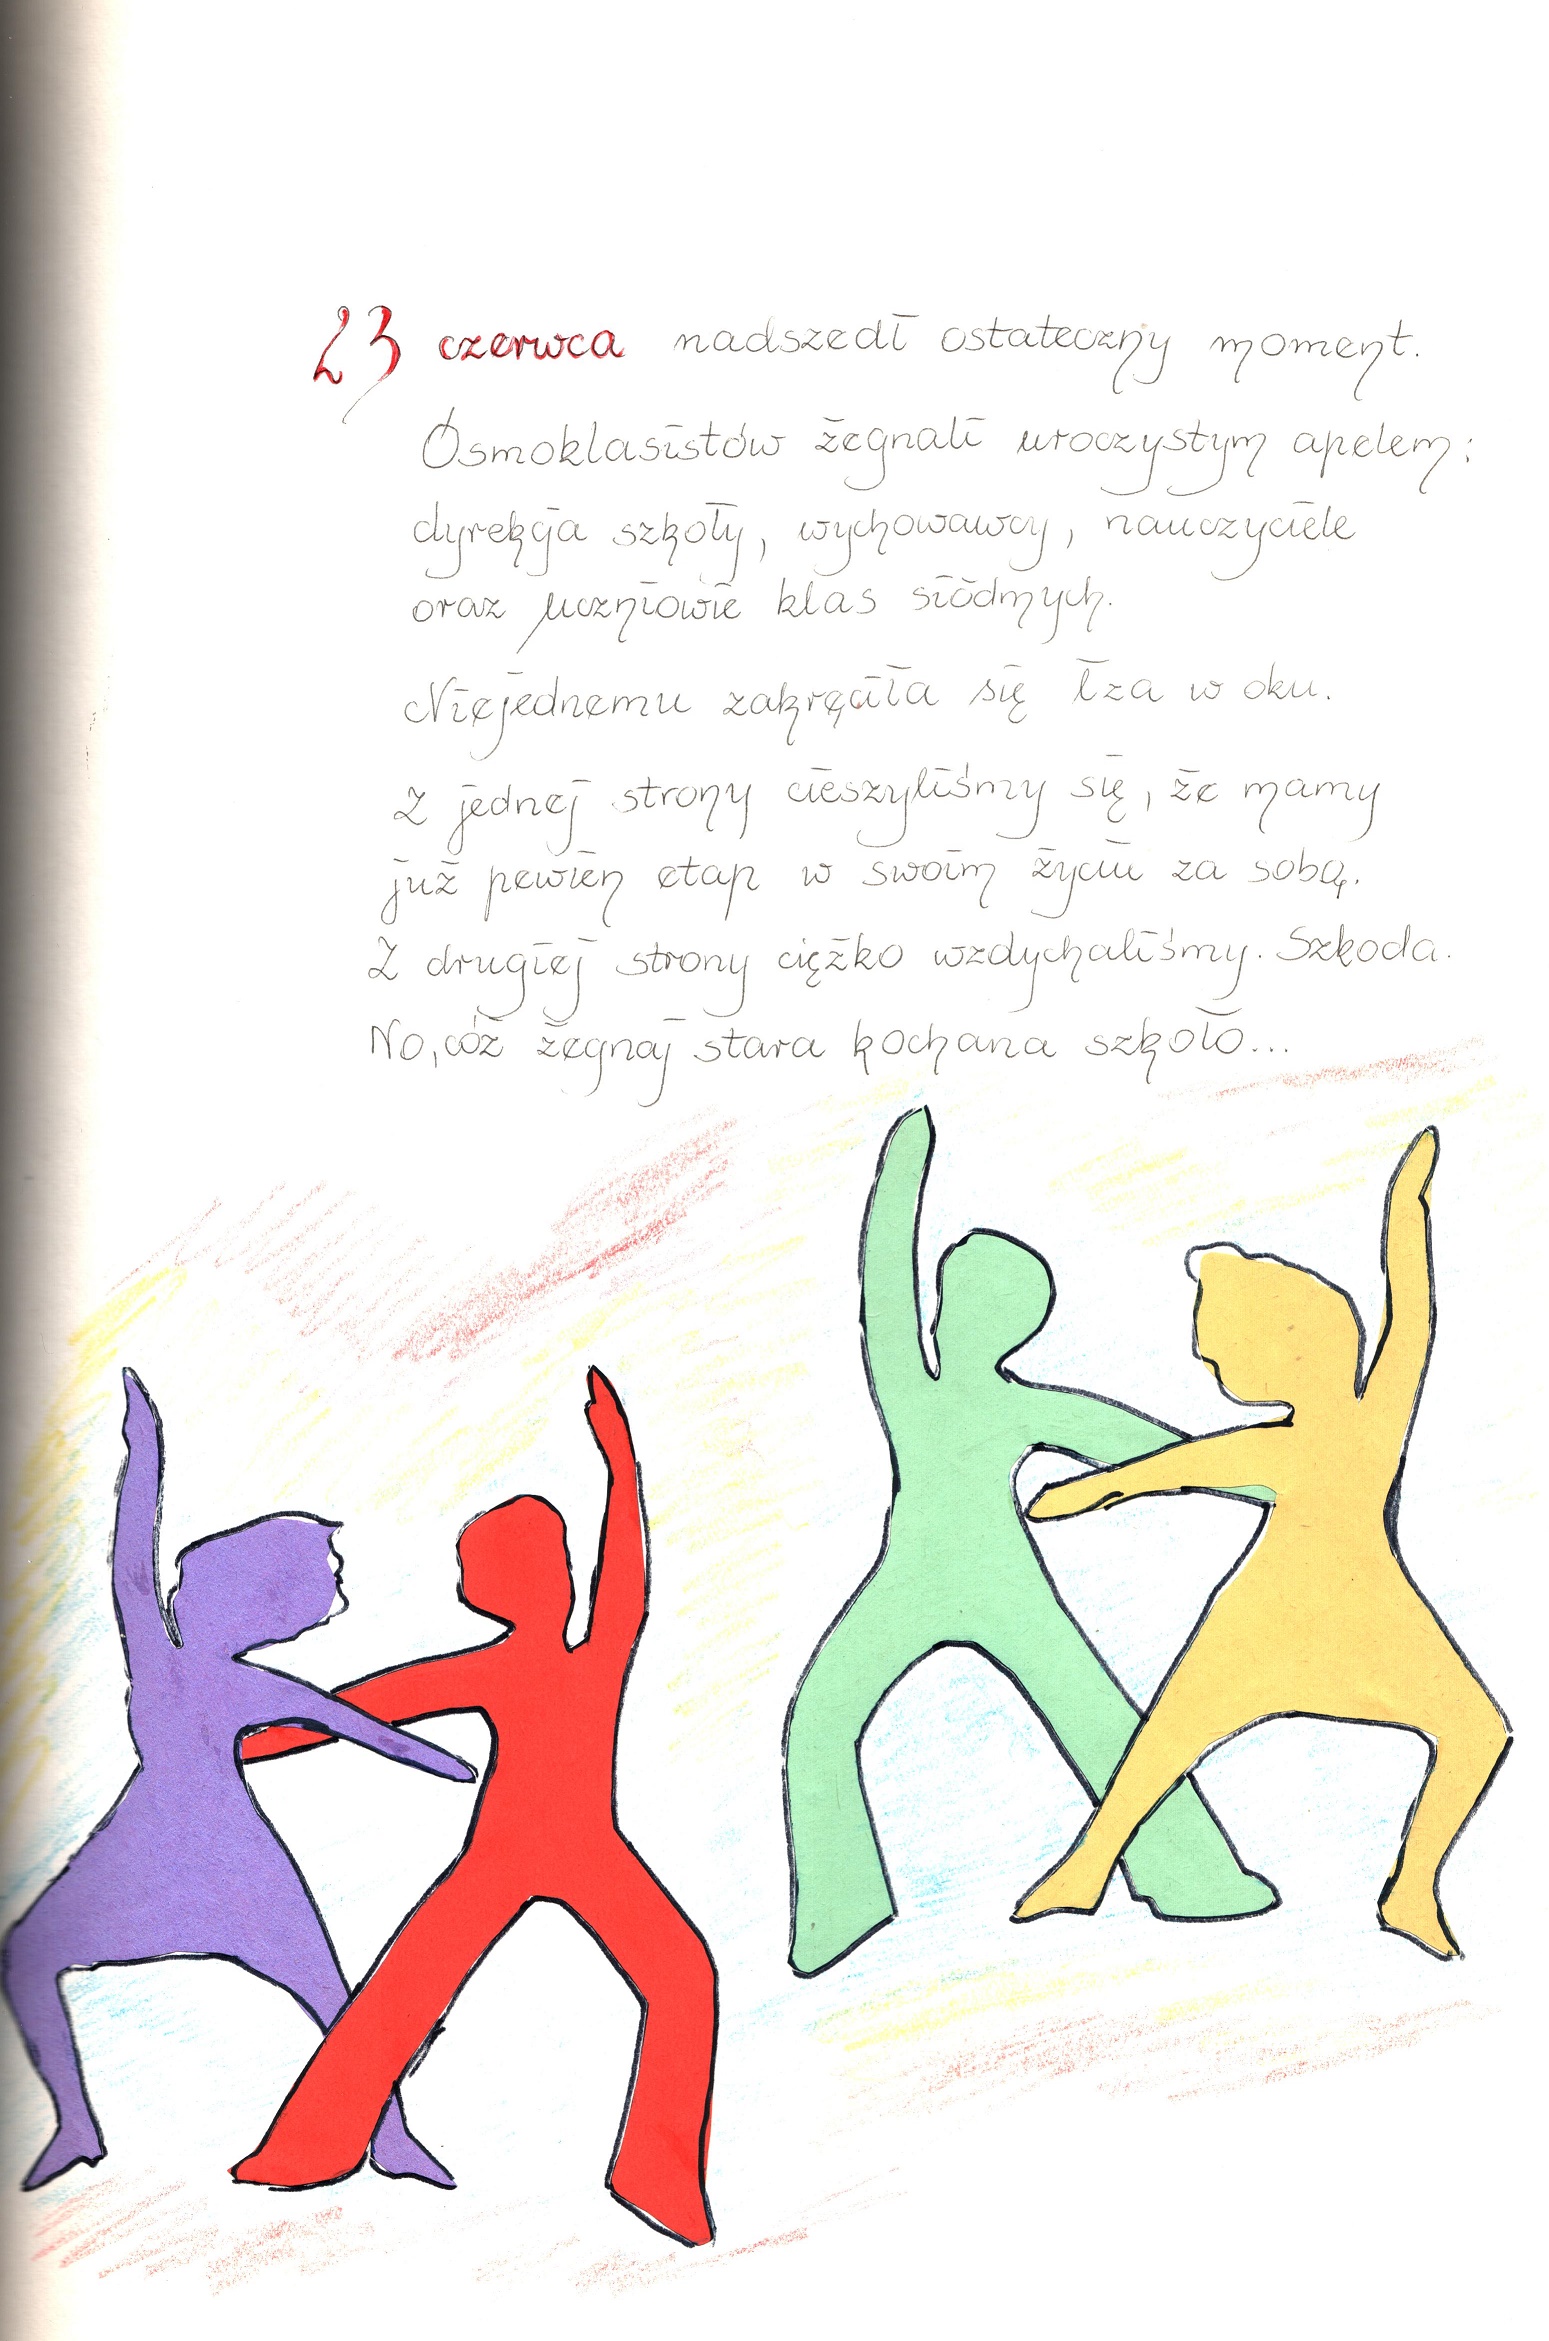 23 czerwca nadszedł ostateczny moment.
Ósmoklasistów żegnali uroczystym apelem:
dyrekcja szkoły, wychowawcy, nauczyciele
oraz uczniowie klas siódmych.
Niejednemu zakręciła się łza w oku.
Z jednej strony cieszyliśmy się, że mamy
już pewien etap w swoim życiu za sobą.
Z drugiej strony ciężko wzdychaliśmy. Szkoda.
No, cóż żegnaj stara kochana szkoło...